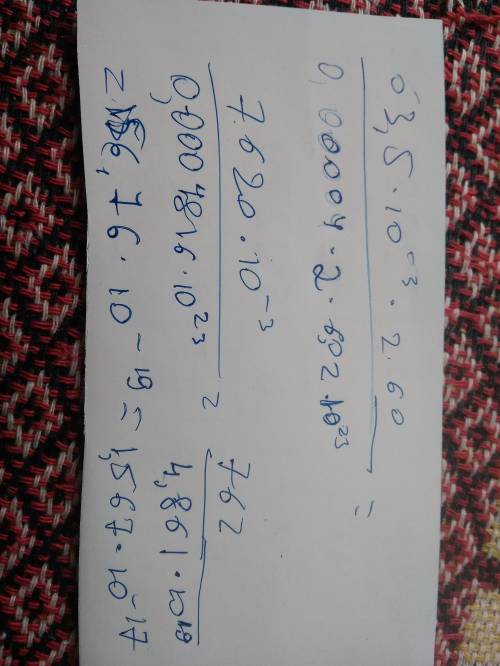 63,5·10⁻³·2·60
0,00004·2·6,02·10²³ =
7620·10⁻³
0,0004816·10²³ =
762
4,861·10¹⁹
= 156,76·10⁻¹⁹ = 1,567·10⁻¹⁷